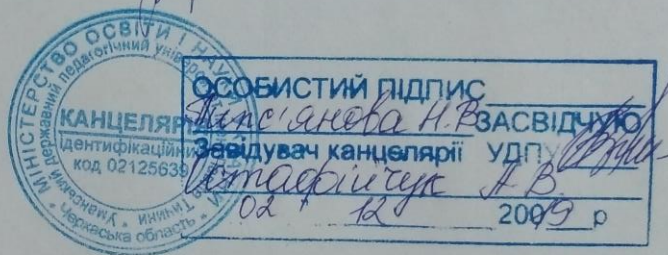 МІНІСТЕРСТВО ОСВІТИ І НАУКИ
Уманський державний педагогічний
Черкаська область
КАНЦЕЛЯРІЯ
Ідентифікаційний
код 02125639
ОСОБИСТИЙ ПІДПИС
Н.В. ЗАСВІДЧУЮ
Завідувач канцелярії УДПУ
Остафійчук А.В.
02 12 2009 р